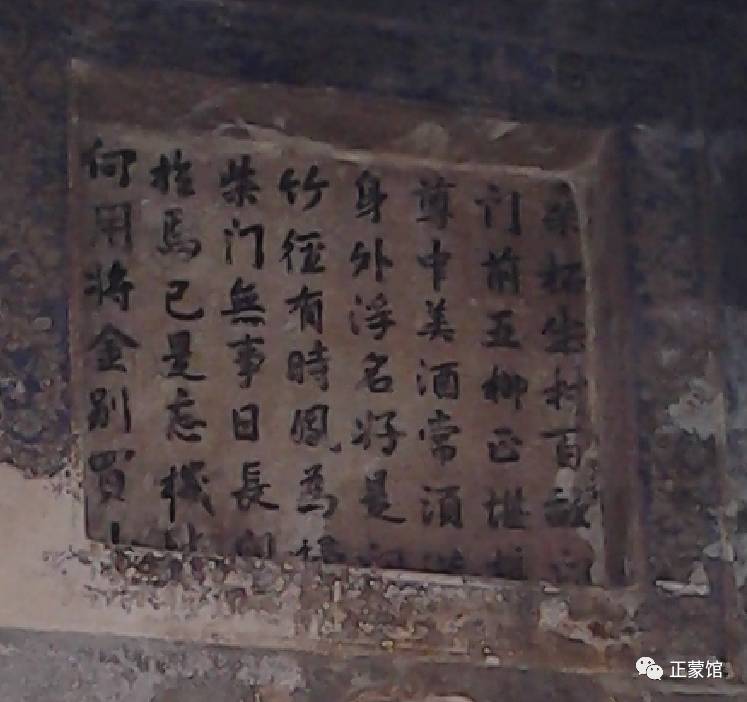 柘生村百畝
门前五柳正堪
尊中美酒常須
身外浮名好是
竹徑有時風為
柴门無事日長
馬已是忘機
何用將金別買
正蒙馆